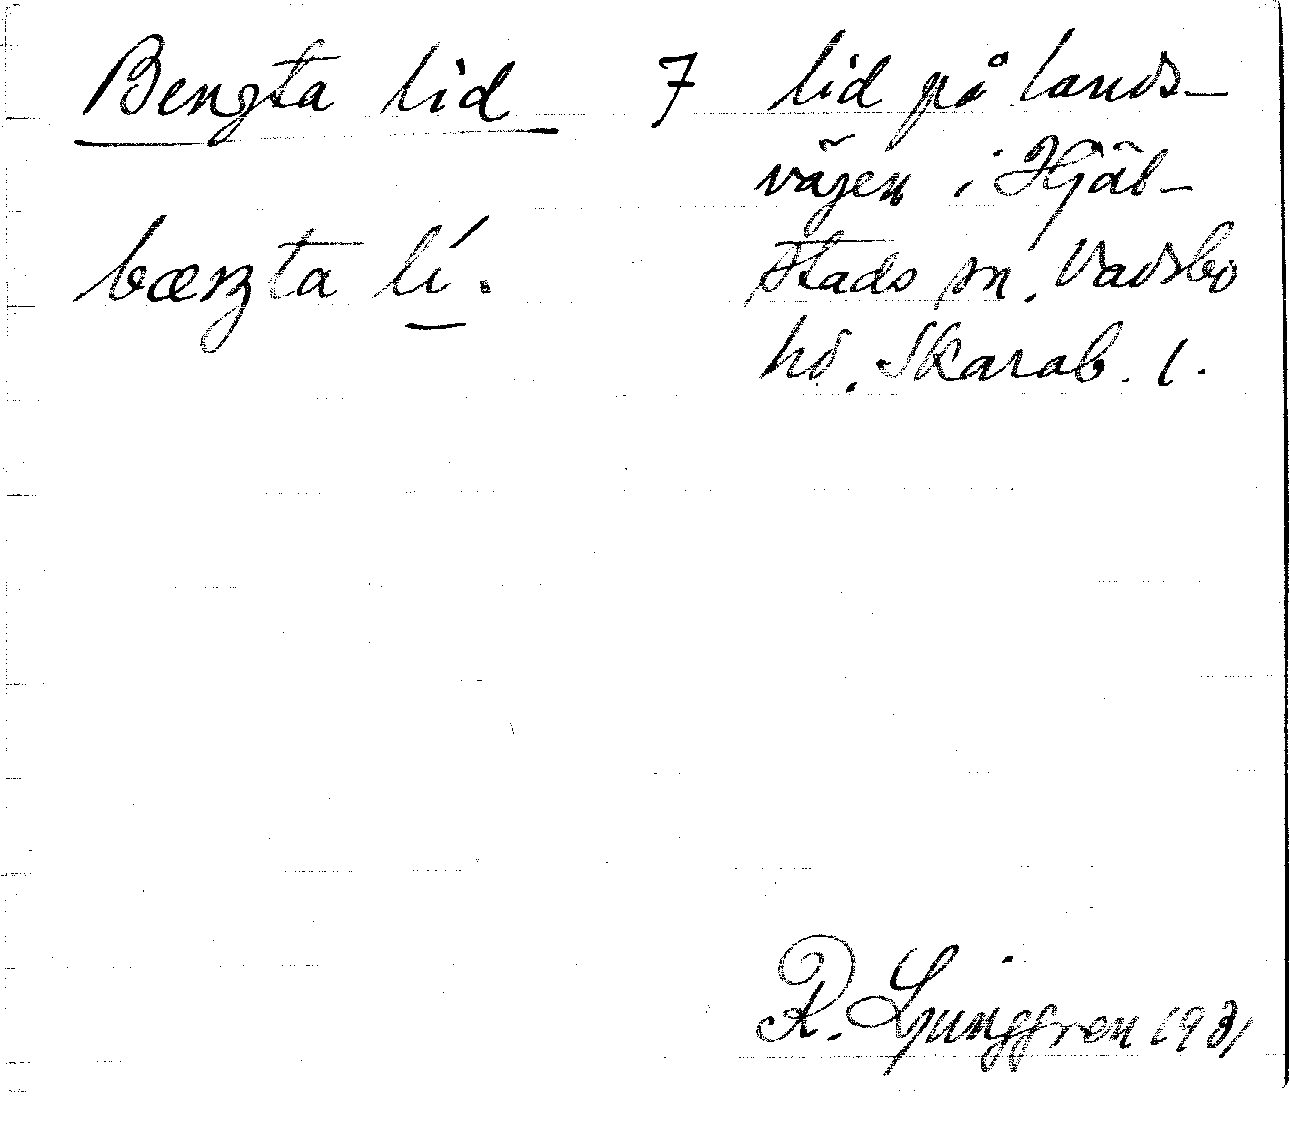 Bengta lid 7 lid på lands-
vägen i Hjäl-
bæŋta lí. stads sn. Vadsbo
hd. Skarab. l.
R. Ljunggren 1931